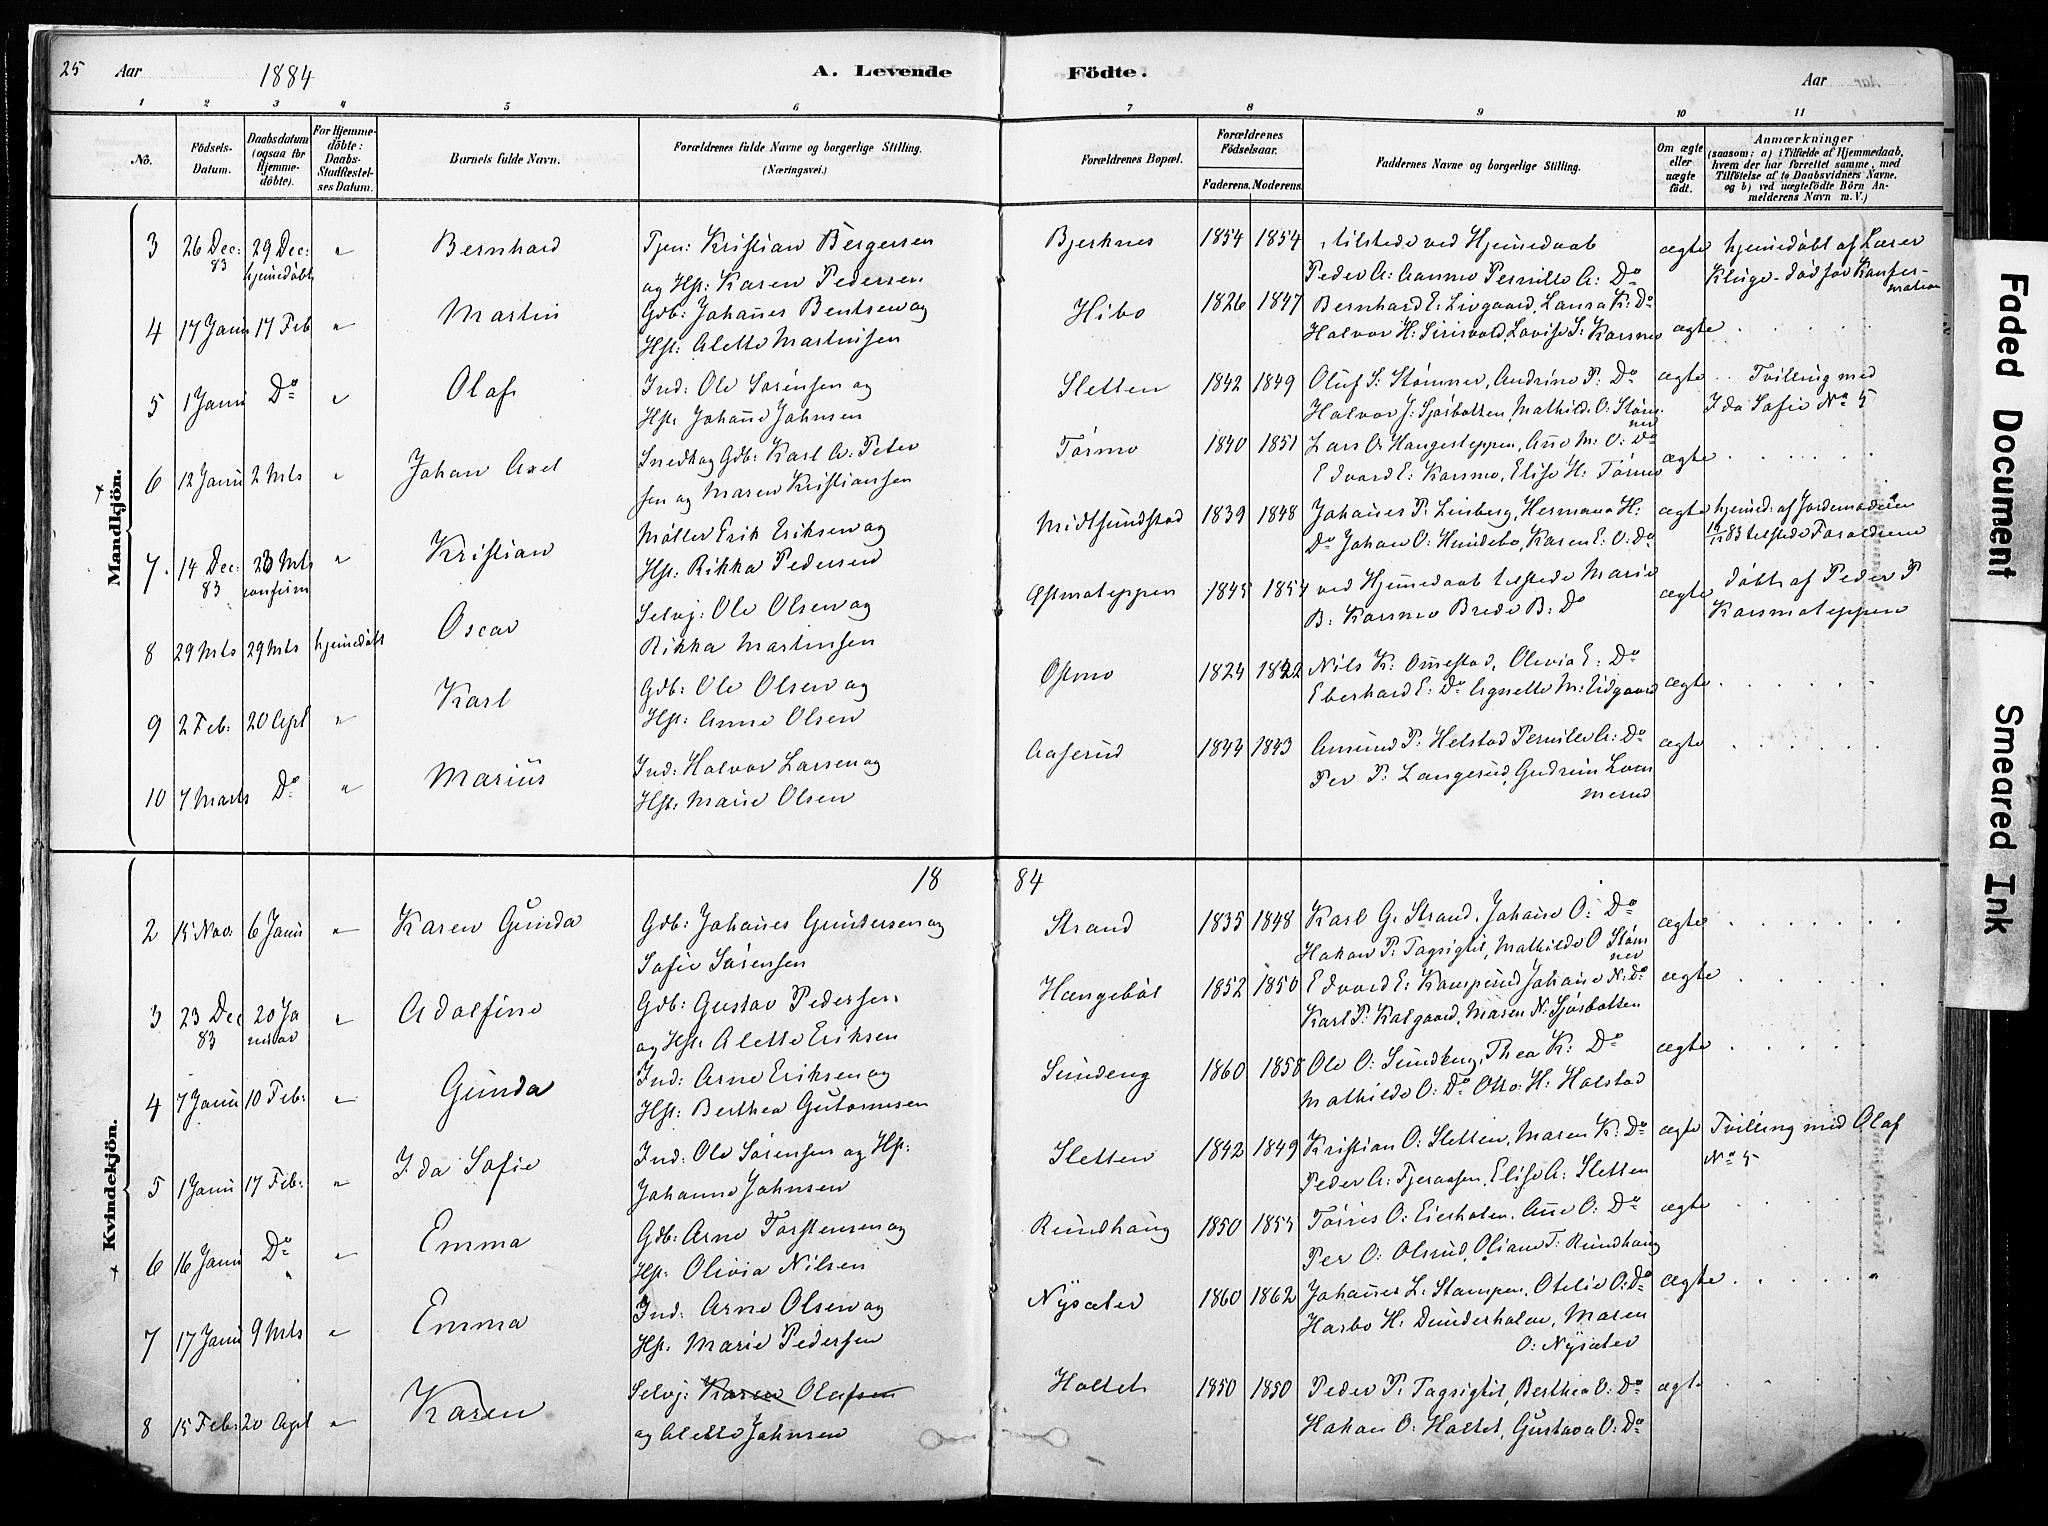 25 Aar 1884 A. Levende Födte. Aar
1 2 3 4 5 6 7 8 9 10 11
No. Födsels-Datum. Daabsdatum (ogsaa for Hjemme-döbte). For Hjemme-döbte: Daabs-Stadfæstel-ses Datum. Barnets fulde Navn. Forældrenes fulde Navne og borgerlige Stilling. (Næringsvei.) Forældrenes Bopæl. Forældrenes Födselsaar. Faderens. Moderens. Faddernes Navne og borgerlige Stilling. Om ægte eller uægte födt. Anmærkninger
(saasom: a) i Tilfælde af Hjemmedaab, hvem der har forrettet samme, med Tilföielse af to Daabsvidners Navne, og b) ved uægtefödte Börn Anmelderens Navn m. V.)
Mandkjön.
3 26 Dec: 83 29 Dec: hjemedøbt " Bernhard Tjen: Kristian Bergersen Bjerknes 1854 1854 tilstede ved Hjemedaab ægte hjemedøbt af Lærer
og Hst: Karen Pedersen Peder A: Aamo Pernille A: Do Kluge - død før Konfirmation
4 17 Janu 17 Feb " Martin Gdb: Johanes Bentsen og Hibo 1826 1847 Bernhard E: Livgaard, Laura K: Do
Hst: Alette Martinsen Halvor H: Lovise S: Karsmo ægte
5 1 Janu Do " Olaf Ind: Ole Sørensen og Sletten 1842 1849 Oluf S: Stømner, Andrine P: Do ægte Tvilling med
Hst: Johane Johnsen Halvor J: Sjøbotten, Mathilde O: Stømner Ida Sofie No 5
6 12 Janu 2 Mts " Johan Axel Snedk og Gdb: Karl A: Peter Tørmo 1840 1851 Lars O: Haugesteppen, Ane M: O: Do
sen og Maren Kristiansen Edvard E: Karsmo, Elise H: Tørmo ægte
7. 14 Dec: 83 23 Mts confirm " Kristian Møller Erik Eriksen og Midtsundstad 1839 1848 Johanes P: Linberg, Hermana H: ægte hjemed: af Jordemoderen
Hst: Rikka Pedersen Do Johan O: Hundebo, Karen E: O: Do 83 tilstede Forældrene
8 29 Mts 29 Mts hjemedøbt Oscar Selvj: Ole Olsen og Astmoteppen 1845 1854 ved Hjemedaab tilstede Marie ægte døbt af Peder P
Rikka Martinsen B: Karsmo Brede B: Do Karsmoteppen
9 2 Feb: 20 Apl " Karl Gdb: Ole Olsen og Ostmo 1824 1842 Nils K: Omestad, Olevia E: Do
Hst: Anne Olsen Eberhard E: Do Agnette M: Lidgaard ægte
10 7 Marts Do " Marius Ind: Halvor Larsen og Aaserud 1844 1843 Amund P: Helstad Pernille A: Do ægte
Hst: Marie Olsen Per P: Langerud, Gudrun Lommerud
18 84
Kvindekjön.
2 15 Nov. 6 Janu " Karen Gunda Gdb: Johanes Gundersen og Strand 1835 1848 Karl G: Strand, Johane O: Do ægte
Sofie Sørensen Hakan P: Tagsigtet, Mathilde O Stømner
3 23 Dec 83 20 Januar " Adolfine Gdb: Gustav Pedersen Hængebøl 1852 1850 Edvard E: Kamperud Johane N: Do ægte
og Hst: Alette Eriksen Karl P: Kalgaard, Maren N: Sjøbotten
4 7 Janu 10 Feb: " Gunda Ind: Arne Eriksen og Sundeng 1860 1858 Ole O: Sundberg, Thea K: Do ægte
Hst: Berthea Gutormsen Mathilde O: Do Otto: H: Halstad
5 1 Janu 17 Feb: " Ida Sofie Ind: Ole Sørensen og Hst: Sletten 1842 1849 Kristian O: Sletten, Maren K: Do ægte Tvilling med Olaf
Johanne Johnsen Peder A: Fjeraasen, Elise A: Sletten No 5
6 16 Janu Do " Emma Gdb: Arne Torstensen og Rundhaug 1850 1855 Tørres O: Eierholen, Ane O: Do ægte
Hst: Olivia Nilsen Per O: Olsrud, Oliane T: Rundhaug
7 17 Janu 9 Mts " Emma Ind: Arne Olsen og Nysæter 1860 1862 Johanes L: Stampen, Otelie O: Do ægte
Hst: Marie Pedersen Harbo H: Dunderholen, Maren
O: Nysæter
8 15 Feb: 20 Apl " Karen Selvj: Karen Olafsen Holtet 1850 1850 Peder P: Tagsigtet, Berthea O: Do ægte
og Alette Johnsen Hakan O: Holtet, Gustava O: Do
Faded Document
Smeared Ink